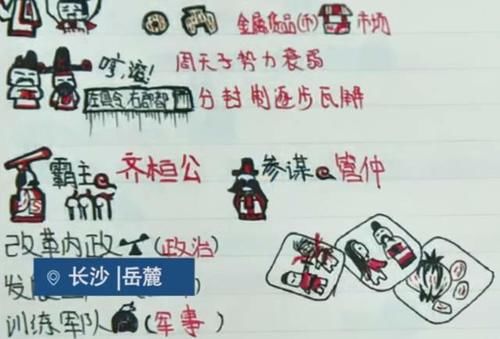 金属货币(币) 市场
哼,滚! 周天子势力衰弱
分封制逐步瓦解
霸主 齐桓公 参谋 管仲
改革内政 (政治)
长沙|岳麓
发展
训练军队 (军事)